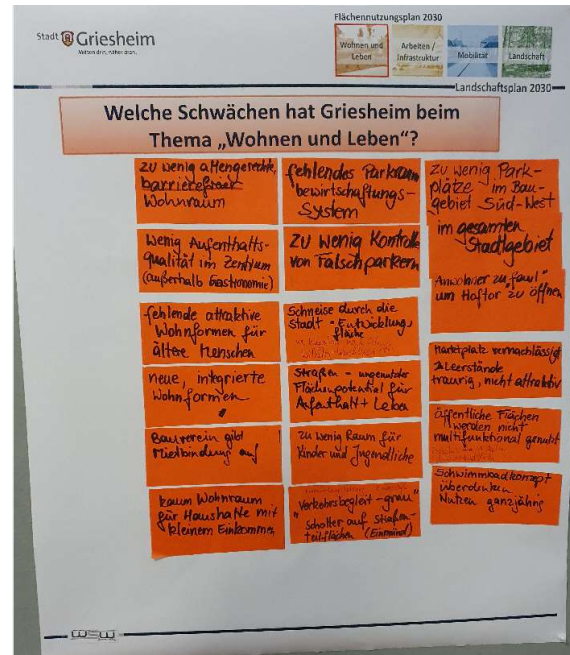 Stadt Griesheim
Mitten drin, näher dran.
Flächennutzungsplan 2030
Wohnen und
Leben
Arbeiten /
Infrastruktur
Mobilität
Landschaft
Landschaftsplan 2030
Welche Schwächen hat Griesheim beim
Thema „Wohnen und Leben“?
zu wenig altengerechte,
barrierefreier
Wohnraum
wenig Aufenthalts-
qualität im Zentrum
(außerhalb Gastronomie)
fehlende attraktive
Wohnformen für
ältere Menschen
neue, integrierte
Wohnformen
Bauverein gibt
Mietbindung auf
kaum Wohnraum
für Haushalte mit
kleinem Einkommen
fehlendes Parkraum
bewirtschaftungs-
System
zu wenig Kontrolle
von Falschparkern
Schneise durch die
Stadt - Entwicklungs
fläche
Straßen - ungenutzter
Flächenpotential für
Aufenthalt + Leben
zu wenig Raum für
Kinder und Jugendliche
"Verkehrsbegleit-grau"
Schotter auf Straßen-
teilflächen (Einmünd)
zu wenig Park-
plätze im Bau-
gebiet Süd-West
im gesamten
Stadtgebiet
Anwohner zu „faul“
um Hoftor zu öffnen
Marktplatz vernachlässigt
Leerstände
traurig, nicht attraktiv
öffentliche Flächen
werden nicht
multifunktional genutzt
Schwimmbadkonzept
überdenken
Nutzen ganzjährig
WSW